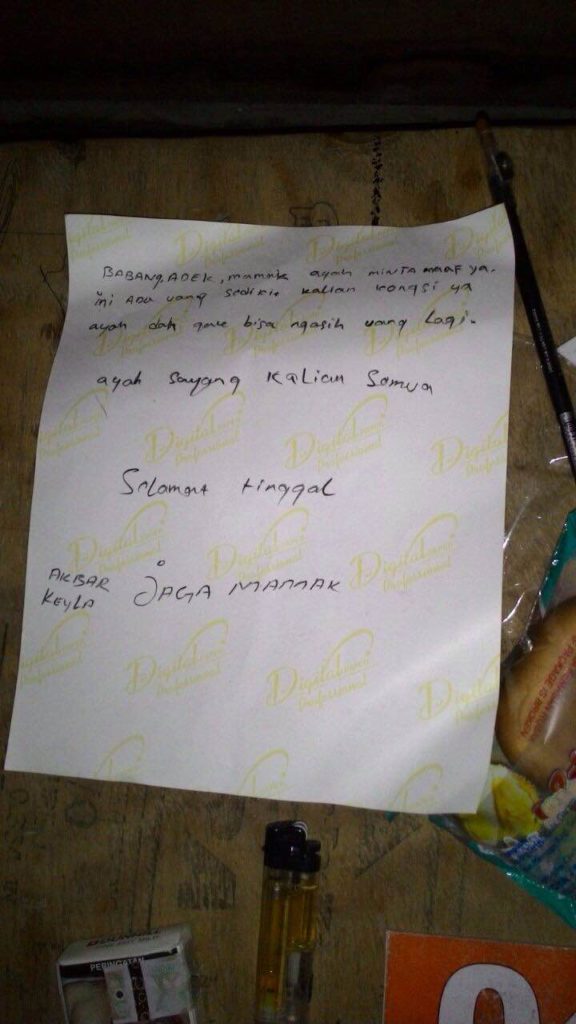 BABANG, ADEK, mamak ayah MINTA MAAF ya.
ini ADA uang sedikit kalian kongsi ya
ayah dah gak bisa ngasih uang lagi.
ayah sayang KaLian Semua
Selamat tinggal
AKBAR
KEYLA
JAGA MAMAK
Digital
Professional
PERINGATAN